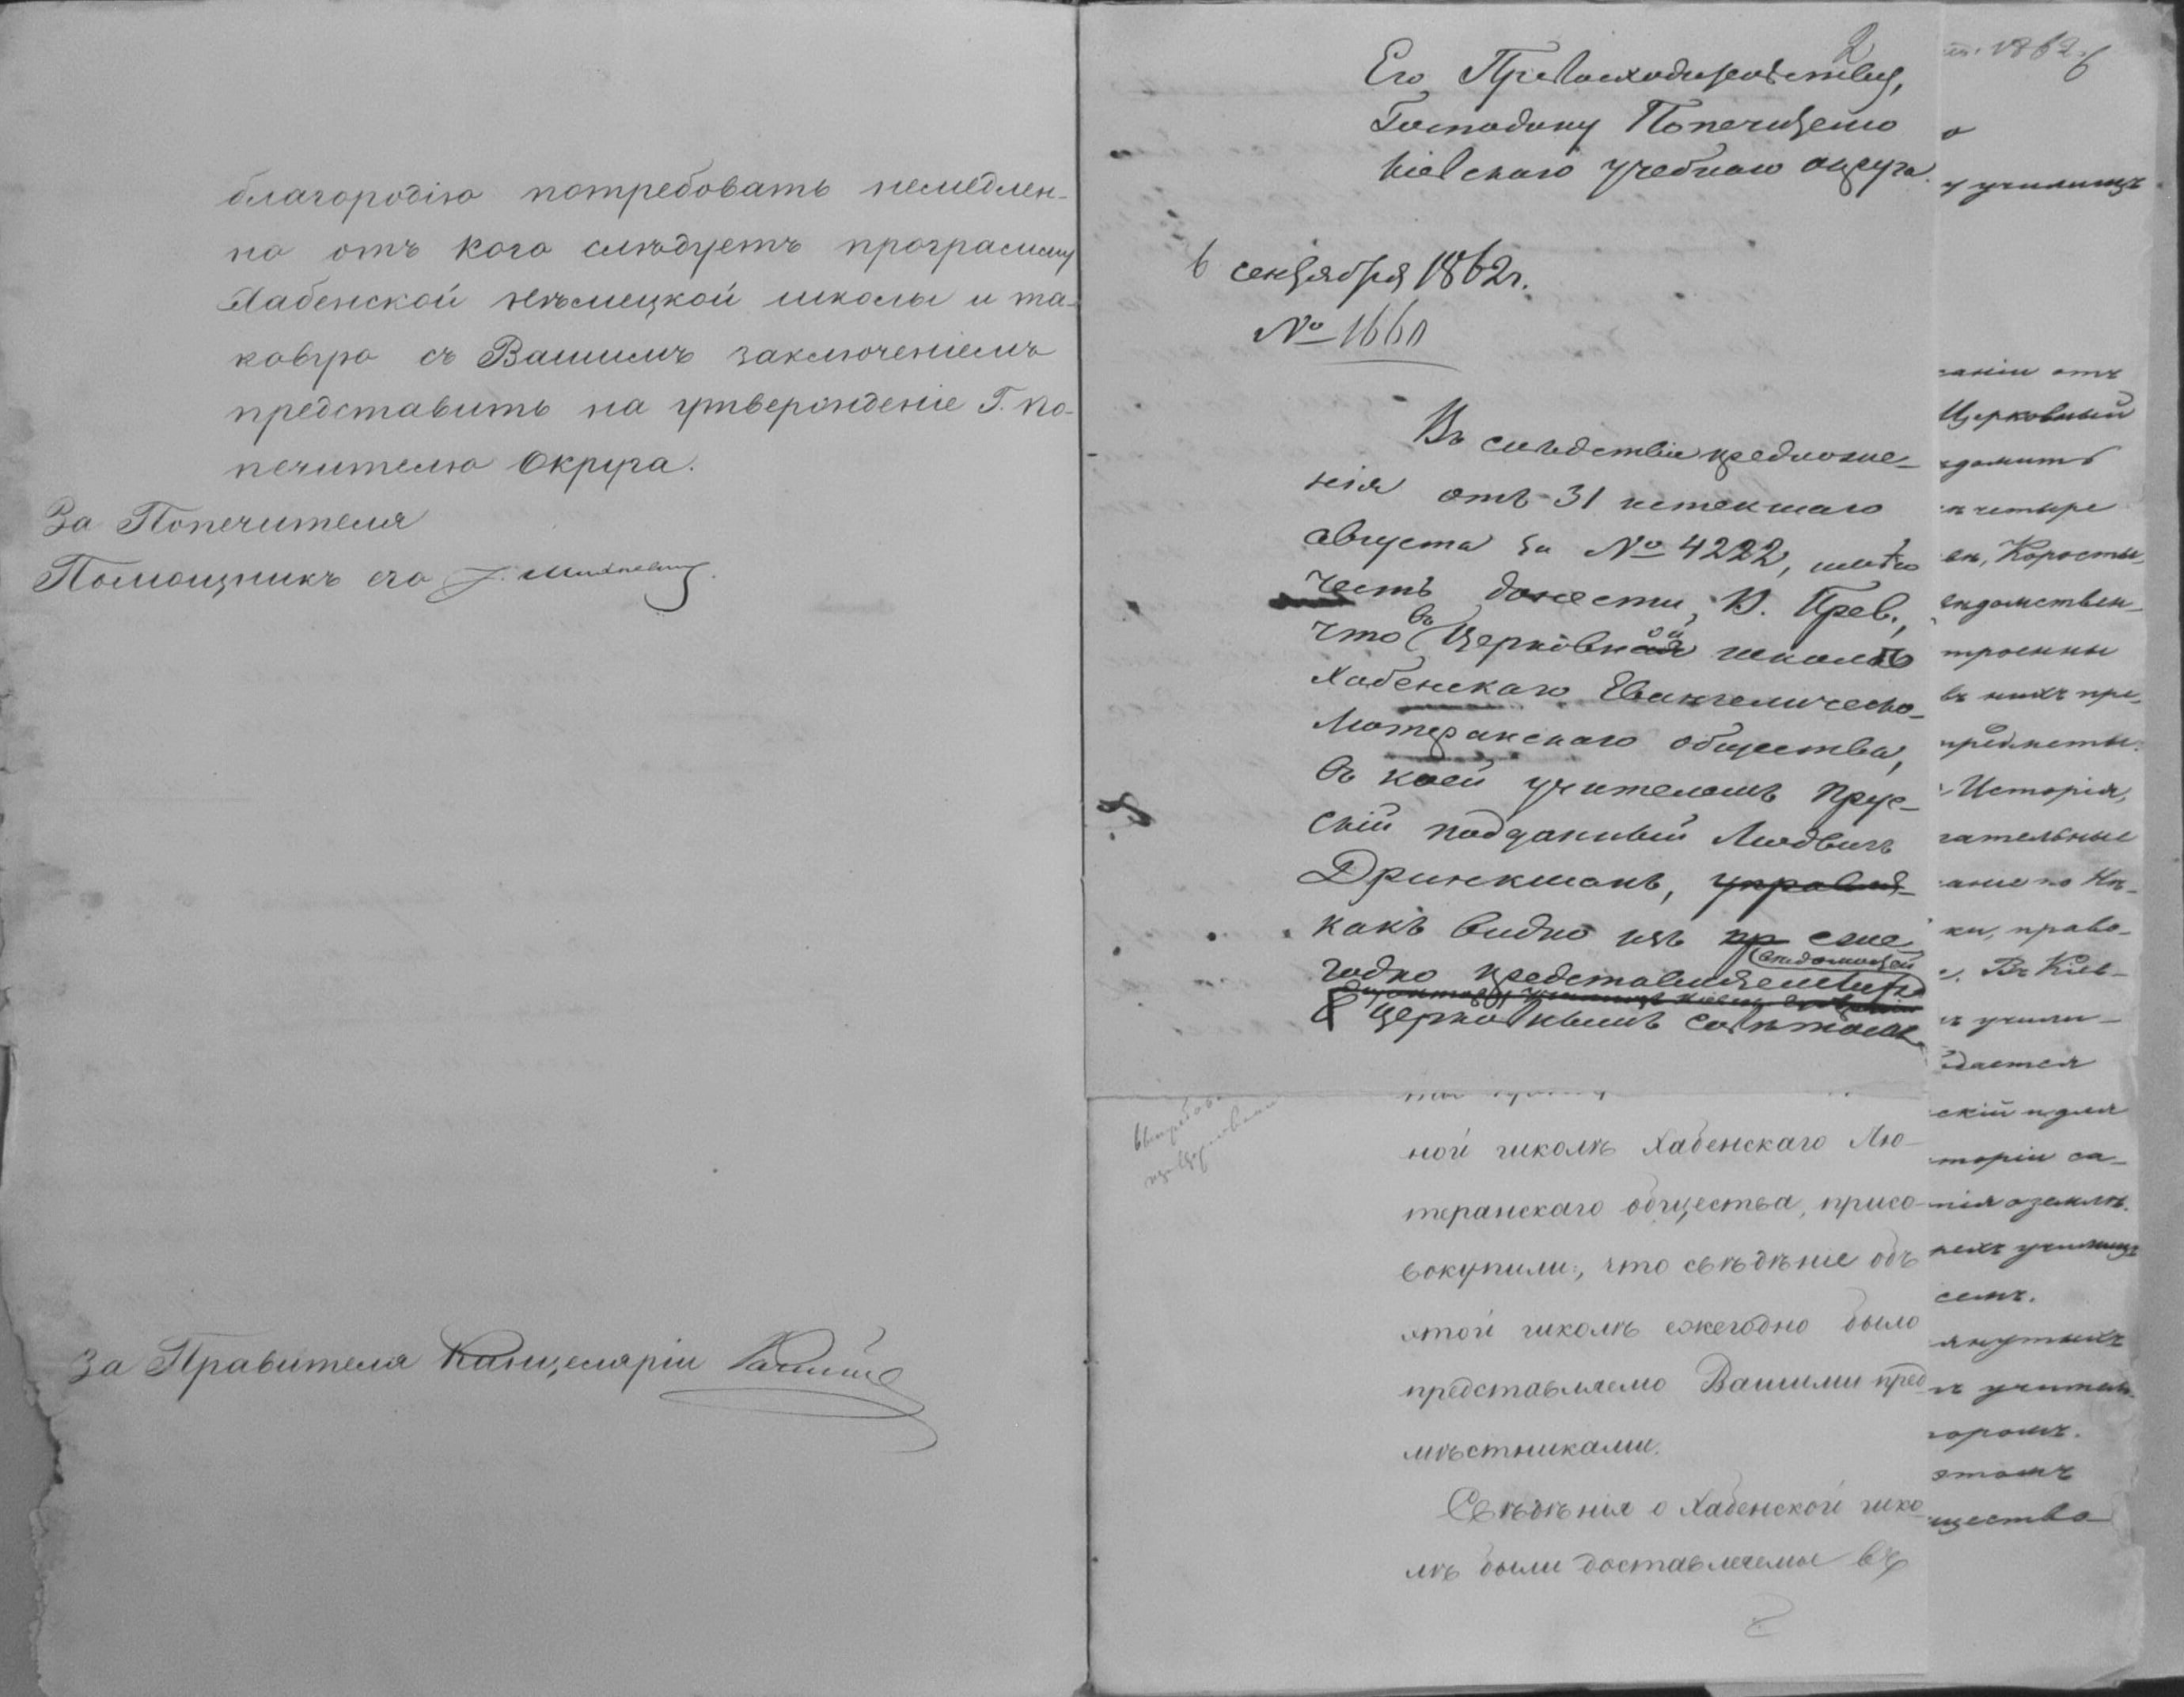 благородію потребовать немедлен-
но отъ кого слѣдуетъ программу
Хабенской нѣмецкой школы и та-
ковую съ Вашимъ заключеніемъ
представить на утвержденіе Г. По-
печителю Округа.
За Попечителя
Помощникъ его
За Правителя Канцеляріи
2
Его Превосходительству,
Господину Попечителю
Кіевскаго учебнаго округа.
6 сентября 1862 г.
№ 1660
Въ слѣдствіе предложе-
нія отъ 31 истекшаго
августа за № 4222, имѣю
честь донести В. Прев.,
что въ Церковной школѣ
Хабенскаго Евангелическо-
Лютеранскаго общества,
въ коей учителемъ Прус-
скій подданный Людвигъ
Дринкманъ, управля-
какъ видно изъ пр еже-
вѣдомостей
годно представляемыхъ
Церковнымъ совѣтомъ
ной школѣ Хабенскаго Лю-
теранскаго общества, присо-
вокупили, что свѣдѣніе объ
этой школѣ ежегодно было
представляемо Вашими пред
мѣстниками.
Свѣдѣнія о Хабенской шко
лѣ были доставляемы въ
1862
о
у училищъ
ваніи отъ
Церковный
домить
четыре
ен, Коросты-
троенны
въ нихъ пре-
предметы:
Исторія,
гательные
ки, право-
Въ Кіев-
учили-
дается
скій и для
торіи са-
нія о землѣ.
рехъ училищъ
семъ.
янутыхъ
учител-
торомъ.
этомъ
щество